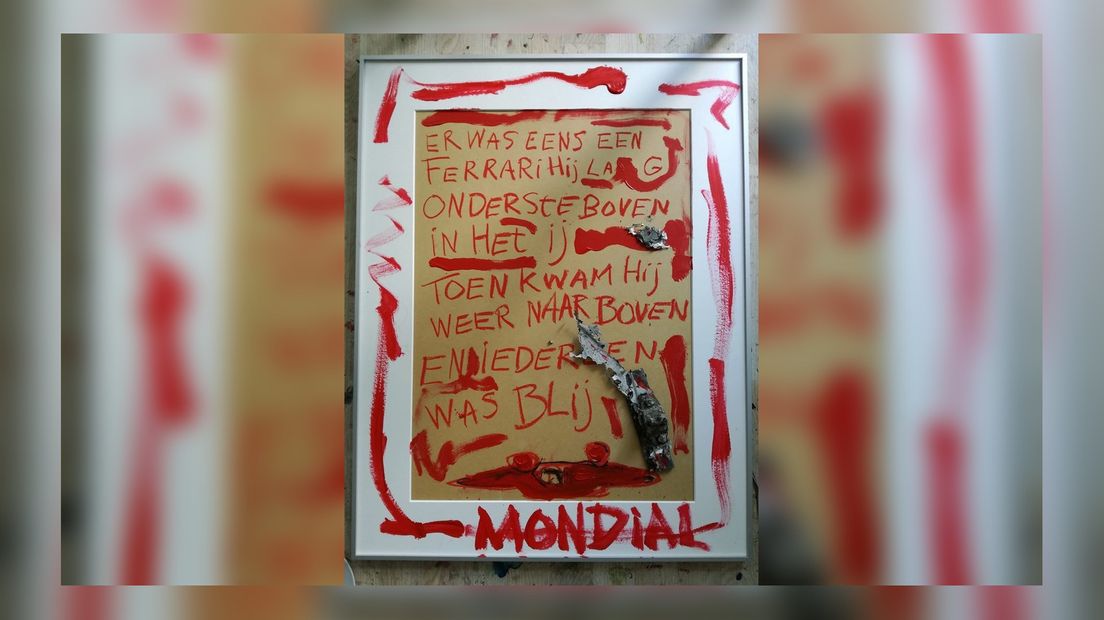 ER WAS EENS EEN
FERRARI Hij LAG
ONDERSTEBOVEN
iN HET ij
TOEN KWAM Hij
WEER NAAR BOVEN
EN IEDEREEN
WAS BLij
MONDiAL